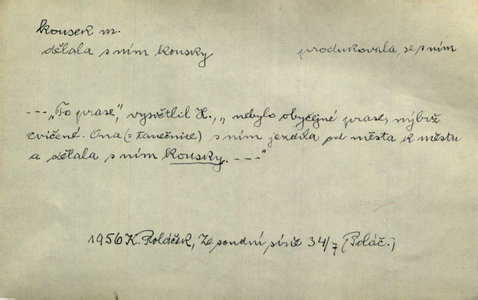 kousek m.
dělala s ním kousky produkovala se s ním
--- „To prase", vysvětlil H., „nebylo obyčejné prase, nýbrž
cvičené. Ona (= tanečnice) s ním jezdila od města k městu
a dělala s ním kousky. ---"
1956 K. Poláček, Ze soudní síně 34/7 (Poláč.)